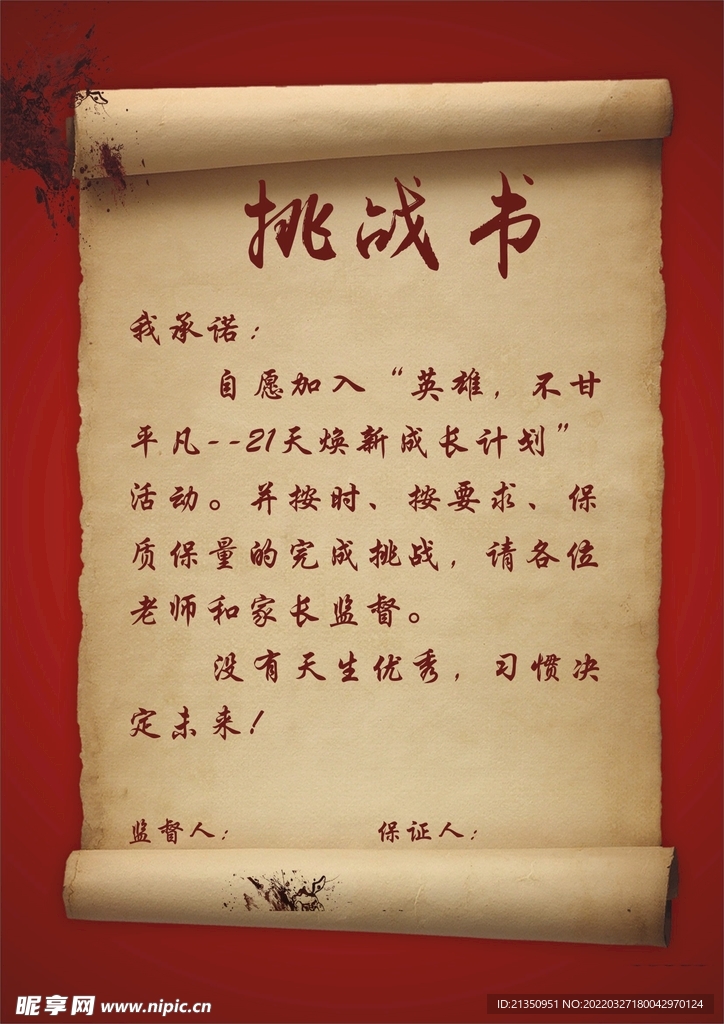 挑战书
我承诺：
自愿加入“英雄，不甘
平凡--21天焕新成长计划”
活动。并按时、按要求、保
质保量的完成挑战，请各位
老师和家长监督。
没有天生优秀，习惯决
定未来！
监督人： 保证人：
昵享网 www.nipic.cn
ID:21350951 NO:20220327180042970124